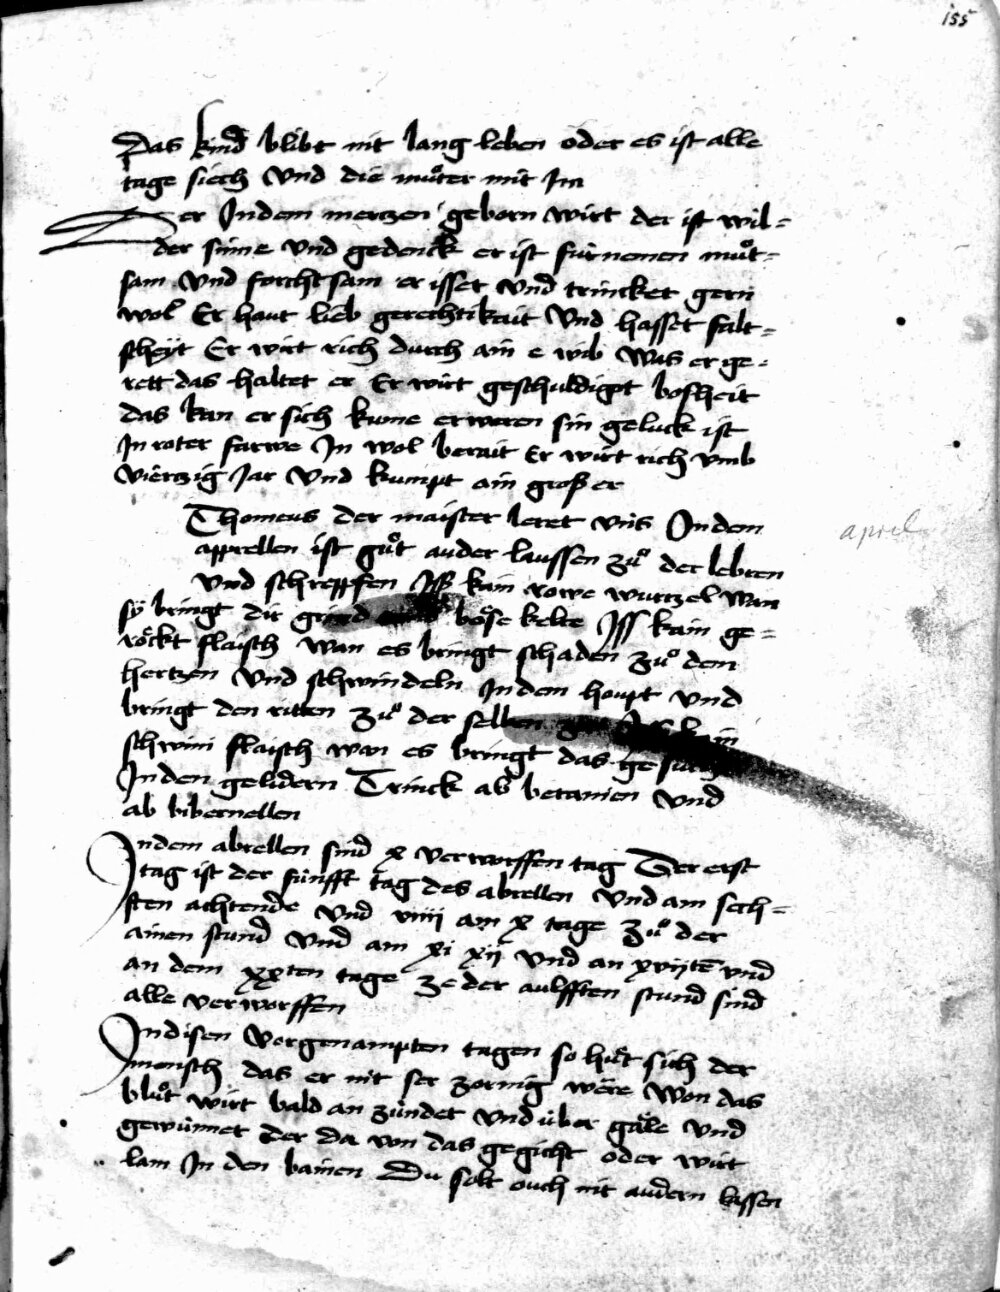 155
Das kind blibt nit lang leben oder es ist alle
tage siech vnd die muͦter mit Im
Der Indem mertzen geborn wirt der ist wil=
der sinne vnd gedenck er ist fürnemen muͦt=
sam vnd forchtsam er isset vnd trincket gern
wol Er haut lieb gerechtikait vnd hasset falt=
scheÿt Er wirt rich durch ain e wib Was er ge=
rett das haltet er Er wirt geschuldigot bosheit
das kan er sich kume erweren sin geluck ist
In roter farwe In wol berait Er wirt rich vmb
viertzig Jar vnd kumpt ain großer
Thomeus der maister leret vns Indem
apprellen ist guͦt auder laussen zuͦ der lebren
vnd schreppfen Iss kain rowe wurtzel wan
sÿ bringt dir grind böse kelte Iss kain ge=
röckt flaisch wan es bringt schaden zuͦ dem
hertzen vnd schwindeln Indem houpt vnd
bringt den ritten zuͦ der selben kain
schwini flaisch wan es bringt das
In den gelidern Trinck ab betanien vnd
ab bibernellen
april
Indem abrellen sind x verworffen tag Der erst
tag ist der fünfft tag des abrellen vnd am sech=
sten achtende vnd viiii am x tage zuͦ der
ainen stund vnd am xi xij vnd an xviite vnd
an dem xxten tage ze der aulfften stund sind
alle verworffen
Indisen vorgenampten tagen so huͤt sich der
mensch das er nit ser zornig were Won das
bluͦt wirt bald an zündet vnd über gäle vnd
gewünnet der da von das gegicht oder wirt
lam In den bainen Du solt ouch nit audern lassen